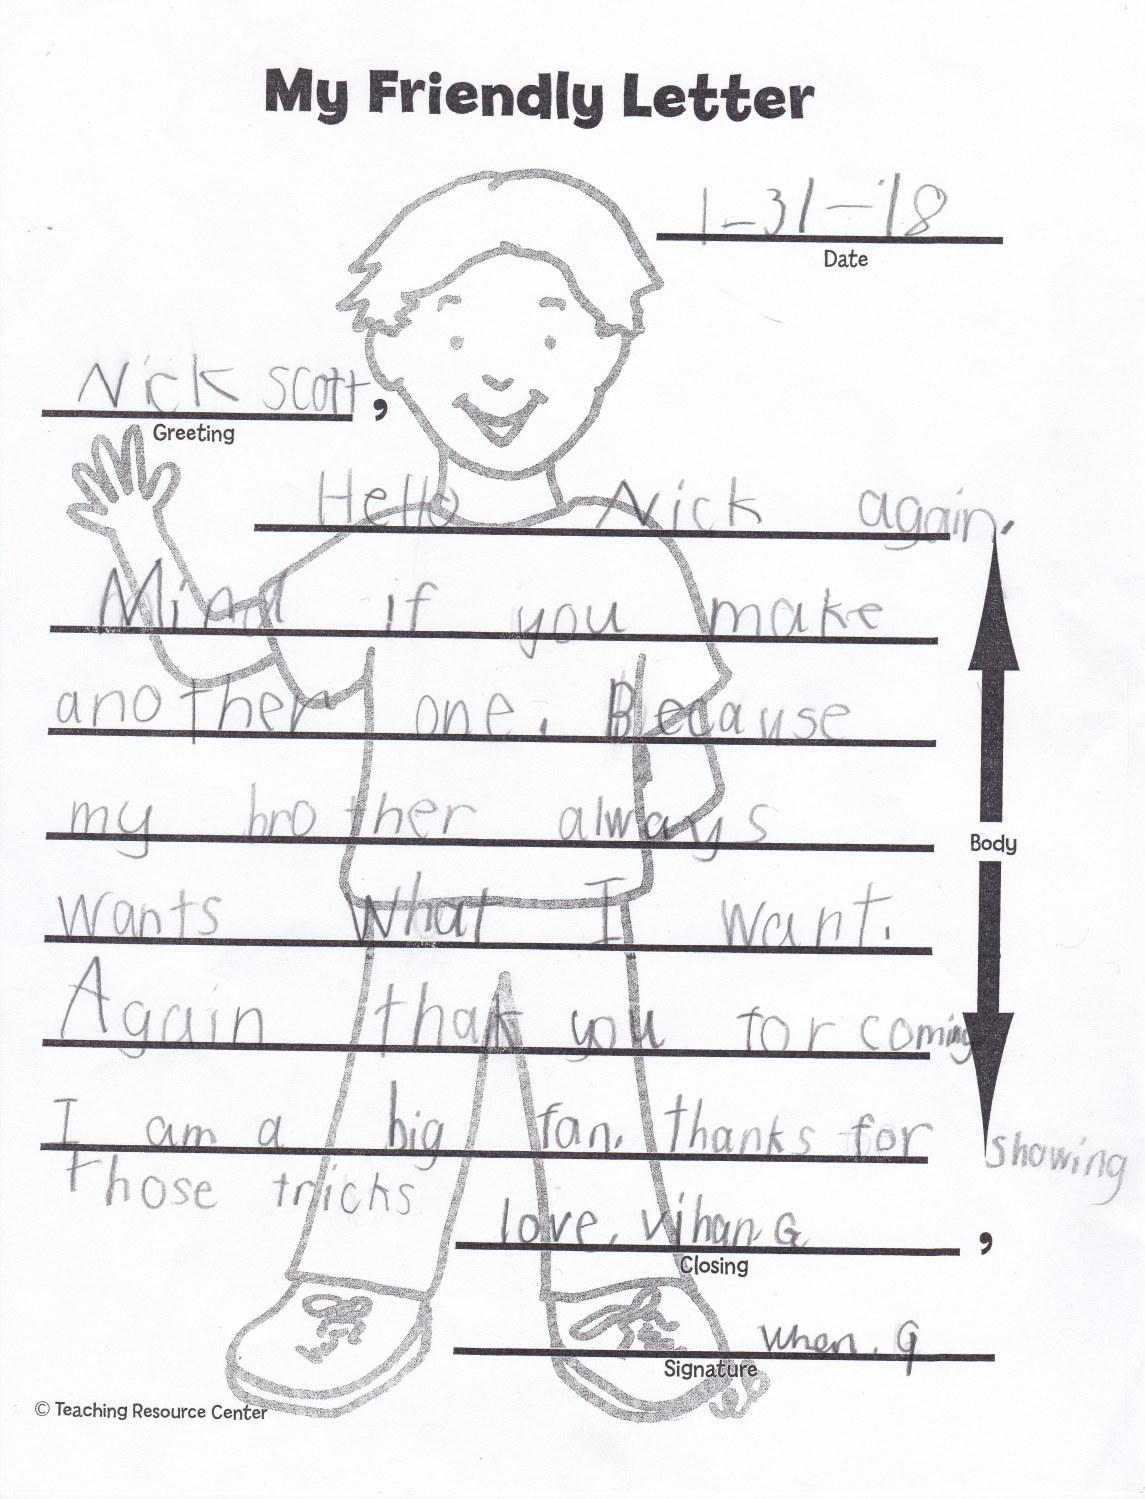 My Friendly Letter
1-31-'18
Date
Nick scott,
Greeting
Hello Nick again.
Mind if you make
another one. Because
my brother always
Body
wants what I want.
Again thak you for coming
I am a big fan. thanks for showing
those tricks
love, vihan. G,
Closing
G
Signature
© Teaching Resource Center